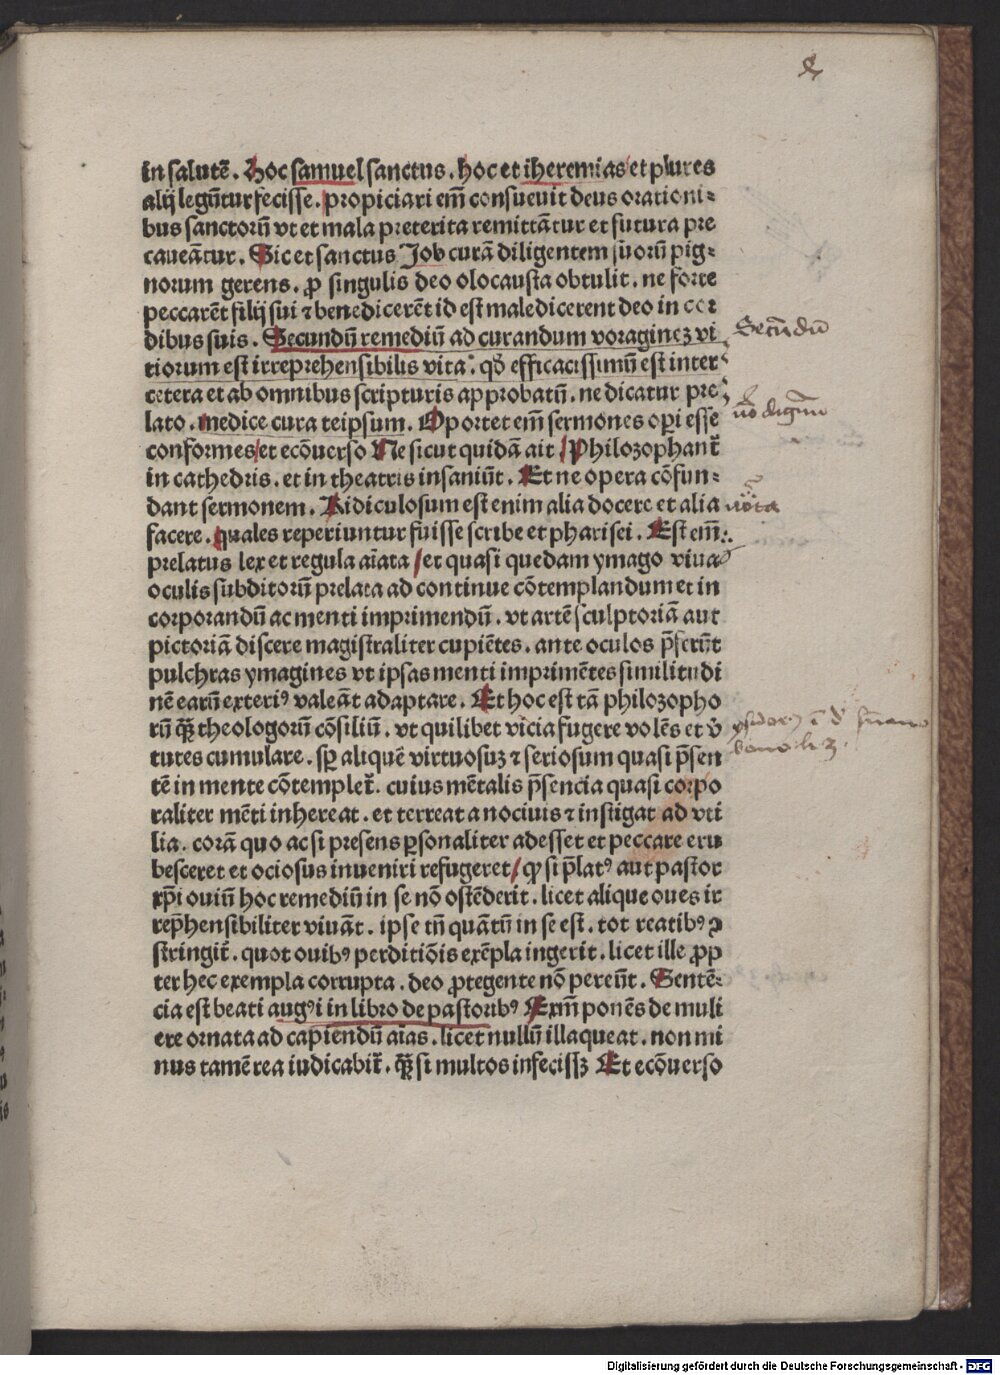 in salutē . Hoc samuel sanctus . hoc et iheremias et plures
alij legūtur fecisse . propiciari em̄ consueuit deus orationi⸗
bus sanctorū vt et mala preterita remittātur et futura pre
caueātur . Sic et sanctus Job curā diligentem suorū pig⸗
norum gerens . ꝓ singulis deo olocausta obtulit . ne forte
peccarēt filij sui ⁊ benedicerēt id est maledicerent deo in cor
dibus suis . Secundū remediū ad curandum voraginez vi
tiorum est irreprehensibilis vita . qḋ efficacissimū est inter
cetera et ab omnibus scripturis approbatū . ne dicatur pre
lato . medice cura teipsum . Oportet em̄ sermones oꝑi esse
conformes / et ecōuerso Ne sicut quidā ait / Philozophant̄
in cathedris . et in theatris insaniūt . Et ne opera cōfun⸗
dant sermonem . Ridiculosum est enim alia docere et alia
facere . quales reperiuntur fuisse scribe et pharisei . Est em̄
prelatus lex et regula aīata / et quasi quedam ymago viua
oculis subditorū prelata ad continue cōtemplandum et in
corporandū ac menti imprimendū . vt artē sculptoriā aut
pictoriā discere magistraliter cupiētes . ante oculos p̄ferūt
pulchras ymagines vt ipsas menti imprimētes similitudi
nē earū exteriꝰ valeāt adaptare . Et hoc est tā philozopho
rū q̄ꝫ theologorū cōsiliū . vt quilibet vicia fugere volēs et v̄
tutes cumulare . sꝑ aliquē virtuosuꝫ ⁊ seriosum quasi p̄sen
tē in mente cōtemplet̄ . cuius mētalis p̄sencia quasi corpo
raliter mēti inhereat . et terreat a nociuis ⁊ instigat ad vti
lia . corā quo ac si presens ꝑsonaliter adesset et peccare eru
besceret et ociosus inueniri refugeret / ꝙ si p̄latꝰ aut pastor
xp̄i ouiū hoc remediū in se nō ostēderit . licet alique oues ir
rep̄hensibiliter viuāt . ipse tn̄ quātū in se est . tot reatibꝰ ꝯ
stringit̄ . quot ouibꝰ perditiōis exēpla ingerit . licet ille ꝓp
ter hec exempla corrupta . deo ꝓtegente nō pereūt . Sentē⸗
cia est beati augꝰi in libro de pastoribꝰ Exm̄ ponēs de muli
ere ornata ad capiendū aīas . licet nullū illaqueat . non mi
nus tamē rea iudicabit̄ . q̄ꝫ si multos infecissꝫ Et ecōuerso
Secūdū
nota
Digitalisierung gefördert durch die Deutsche Forschungsgemeinschaft - DFG